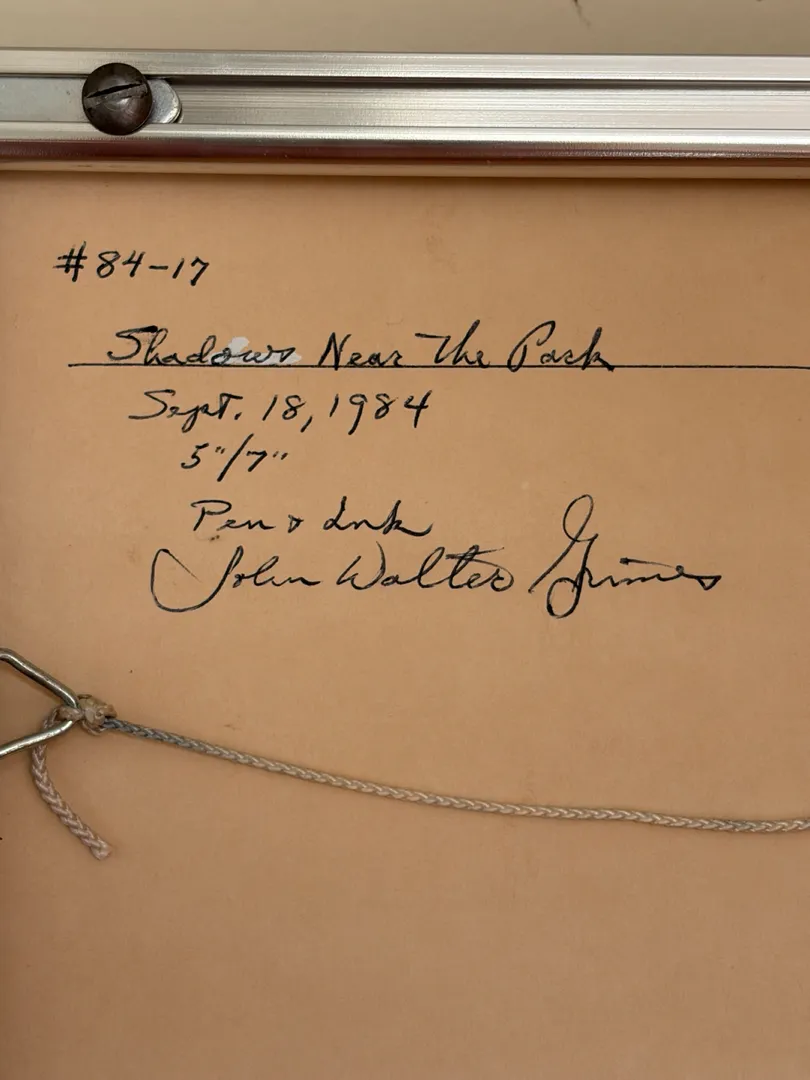 #84-17
Shadows Near The Park
Sept. 18, 1984
5"/7"
Pen & Ink
John Walter Grimes